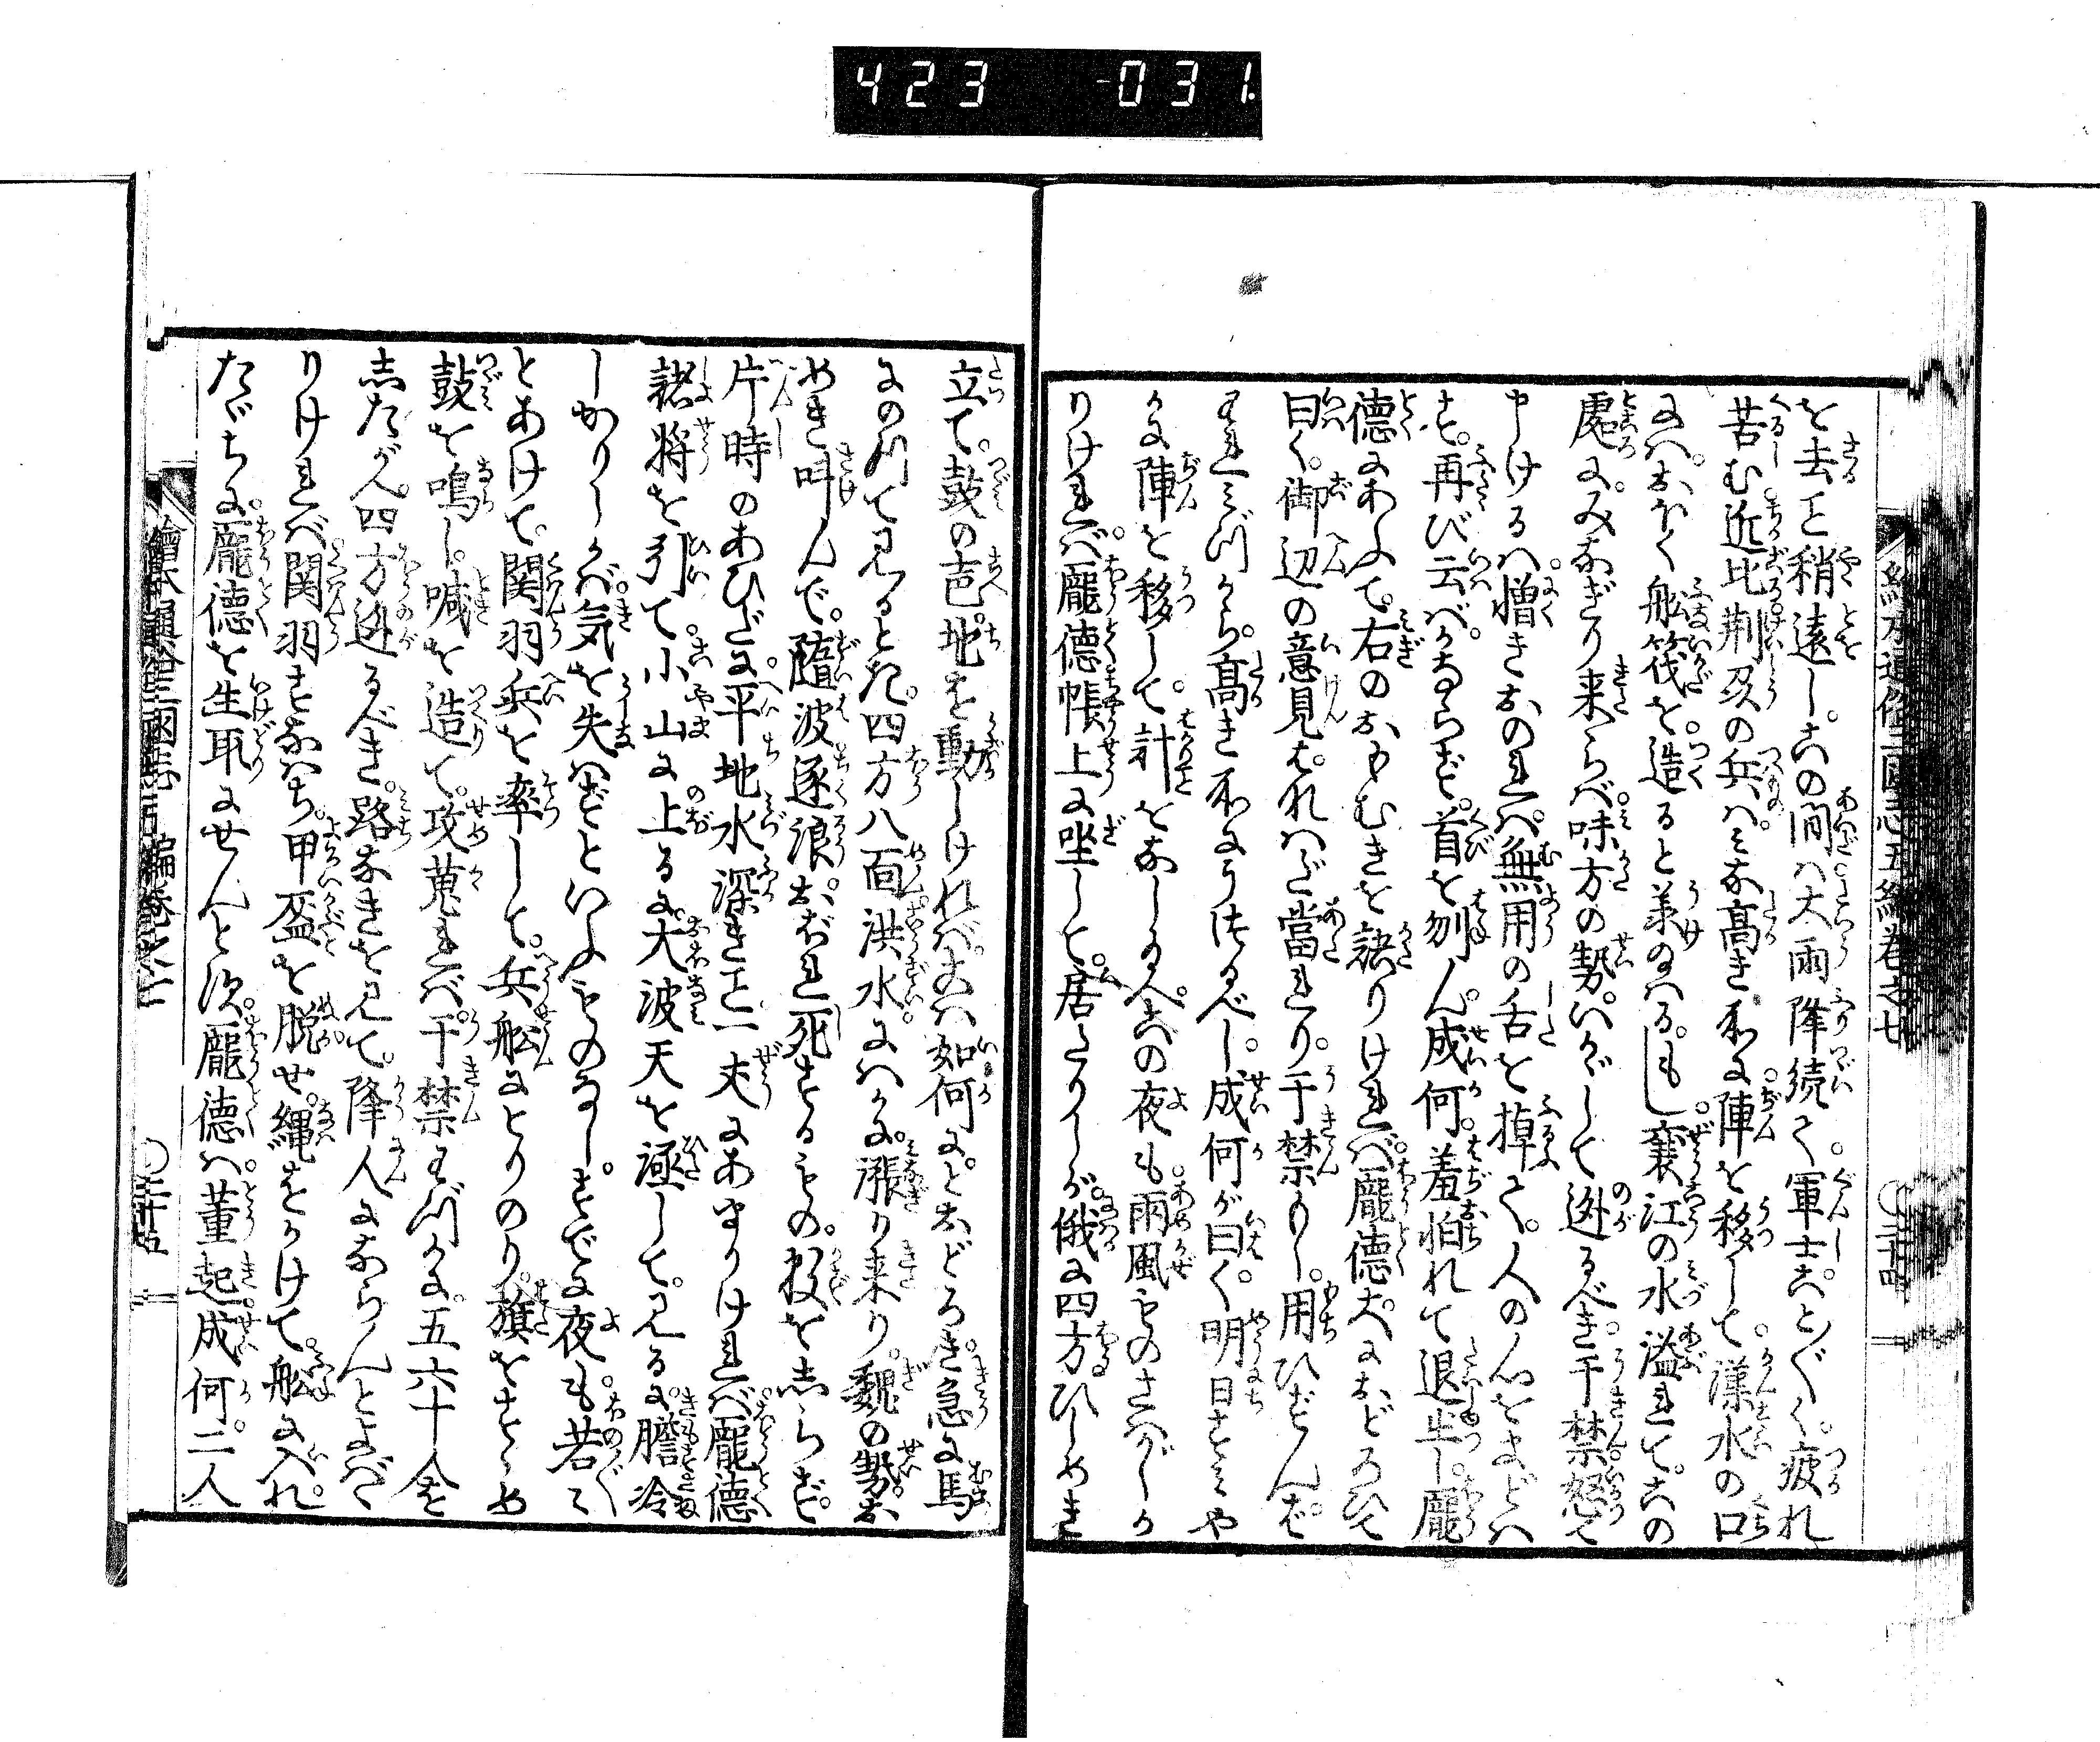 423 -031.
繪本通俗三國志五編卷之七 〇二十四
を去こと稍遠し。この間ハ大雨降続て。軍士こと〲く。疲れ
苦む近比荊州の兵ハ。ミな高き所に陣を移して。漢水の口
にハ。おほく舩筏を。造ると承ハる。もし。襄江の水溢れて。この
處にみなぎり来らバ。味方の勢。いかゞして迯るべき。于禁怒て
申けるハ。憎きおのれハ無用の舌を掉て。人の心をまどハ
す。再び云バかならず。首を刎ん。成何。羞怕れて退出し。龐
德にあふて。右のおもむきを訣りけれバ。龐德大におどろひて
曰く。御辺の意見ハ。はなはだ當れり。于禁もし。用ひずんバ。
われミづから。高き所にうつるべし。成何が曰く。明日すミや
かに陣を移して。計をなしたまへ。この夜も。雨風ものさハがしか
りけれバ。龐德帳上に坐して。居たりしが。俄に四方ひしめき
立て。鼓の声。地を動しけれバ。こハ如何にと。おどろき。急に馬
にのりて見ると。四方八面。洪水。にハかに。漲り来り。魏の勢。お
めき叫んで。隨波逐浪。おぼれ死するもの。数を志らず。
片時のあひだに。平地水深きこと一丈にあまりけれバ。龐德
諸将を引て。小山に上るに。大波天を極して。見るに。膽冷
しかりしかバ。気を失ハずといふものなし。すでに夜も。若々
とあけて。関羽兵を率して。兵舩にとりのり。旗をすゝめ
鼓を鳴し。喊を造て。攻蒐れバ。于禁わづかに。五六十人を
志たがへ。四方迯るべき。路なきを見て。降人にならんとよバゝ
りけれバ関羽すなハち。甲盔を脱せ。縄をかけて。舩に入れ。
たゞちに。龐德を生取にせんとす。龐德ハ。董起。成何。二人
繪本通俗三國志五編卷之七 〇二十五